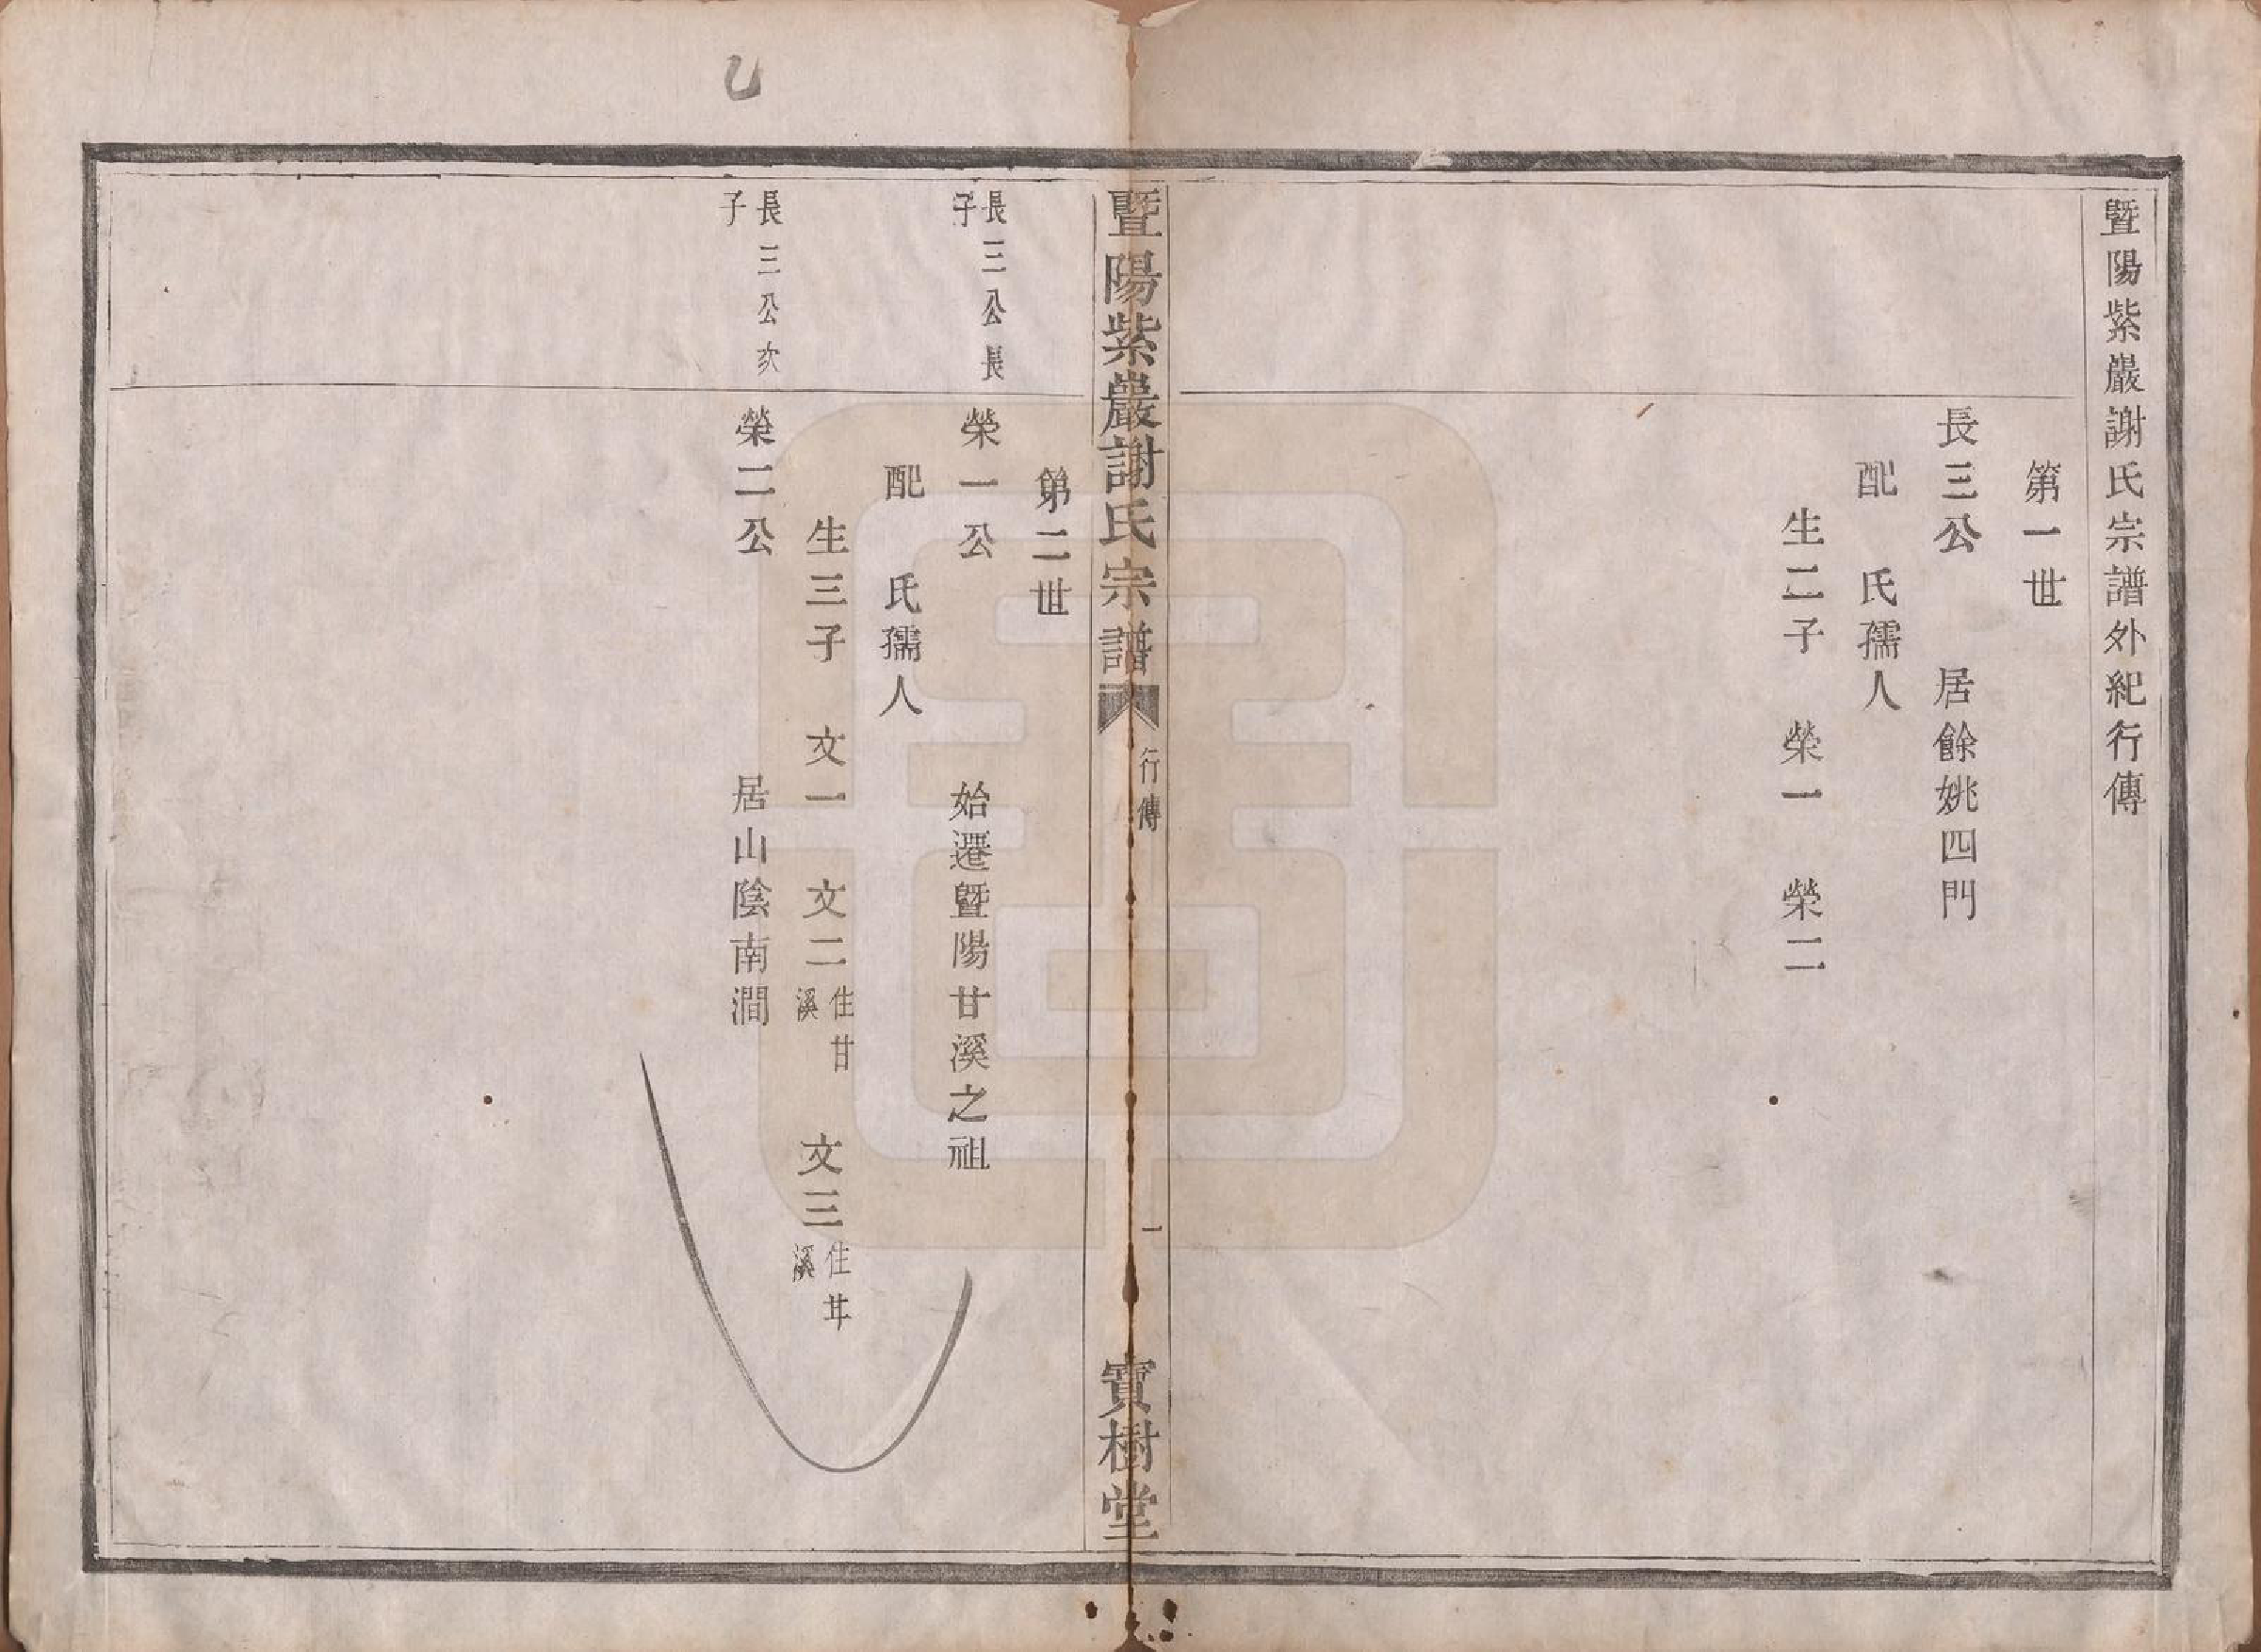 暨陽紫巖謝氏宗譜外紀行傳
第一世
長三公　居餘姚四門
配　氏孺人
生二子　榮一　榮二
暨陽紫巖謝氏宗譜　行傳　一　寶樹堂
第二世
長三公長子
榮一公　始遷暨陽甘溪之祖
配　氏孺人
生三子　文一　文二住甘溪　文三住甘溪
長三公次子
榮二公　居山陰南澗